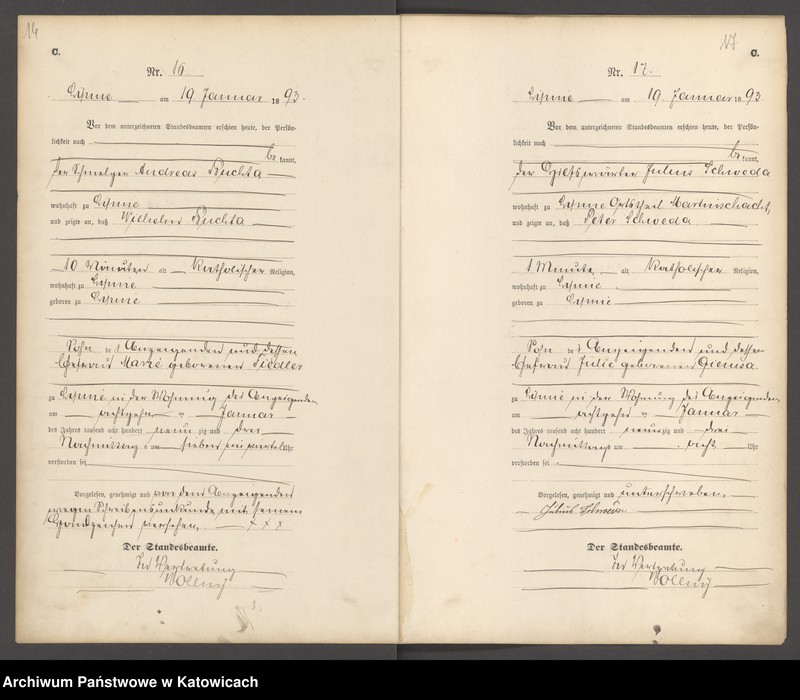 16
C.
Nr. 16
am 19 Januar 1893.
Vor dem unterzeichneten Standesbeamten erschien heute, der Persön-
lichkeit nach
be kannt,
der Schmelzer Andreas Ruchta
wohnhaft zu
und zeigte an, daß Wilhelm Ruchta
10 Minuten alt Katholischer Religion,
wohnhaft zu
geboren zu
Sohn des Anzeigenden und dessen
Ehefrau Marie geborenen Fiedler
zu in der Wohnung des Anzeigenden
am achtzehn ten Januar
des Jahres tausend acht hundert neun zig und drei
Nachmittags um sieben ein viertel Uhr
verstorben sei
Vorgelesen, genehmigt und von dem Anzeigenden
wegen Schreibensunkunde mit seinem
Handzeichen versehen. + + +
Der Standesbeamte.
In Vertretung
Wollny
17
C.
Nr. 17.
am 19 Januar 1893
Vor dem unterzeichneten Standesbeamten erschien heute, der Persön-
lichkeit nach
be kannt,
der Julius Schweda
wohnhaft zu Ortstheil Martinschacht,
und zeigte an, daß Peter Schweda
1 Minute alt Katholischer Religion,
wohnhaft zu
geboren zu
Sohn des Anzeigenden und dessen
Ehefrau Julie geborenen
zu in der Wohnung des Anzeigenden
am achtzehn ten Januar
des Jahres tausend acht hundert neun zig und drei
Nachmittags um acht Uhr
verstorben sei
Vorgelesen, genehmigt und unterschrieben.
Julius Schweda
Der Standesbeamte.
In Vertretung
Wollny
Archiwum Państwowe w Katowicach